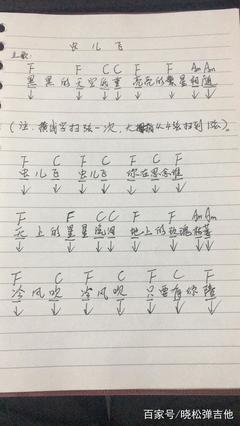 虫儿飞
主歌:
F F C C F F Am Am
黑黑的天空低垂 亮亮的繁星相随
(注.横线字扫弦一次,大拇指从4弦扫到1弦)。
F C F F C F
虫儿飞 虫儿飞 你在思念谁
F F C C F F Am Am
天上的星星流泪 地上的玫瑰枯萎
F C F C F C F
冷风吹 冷风吹 只要有你陪
百家号/晓松弹吉他